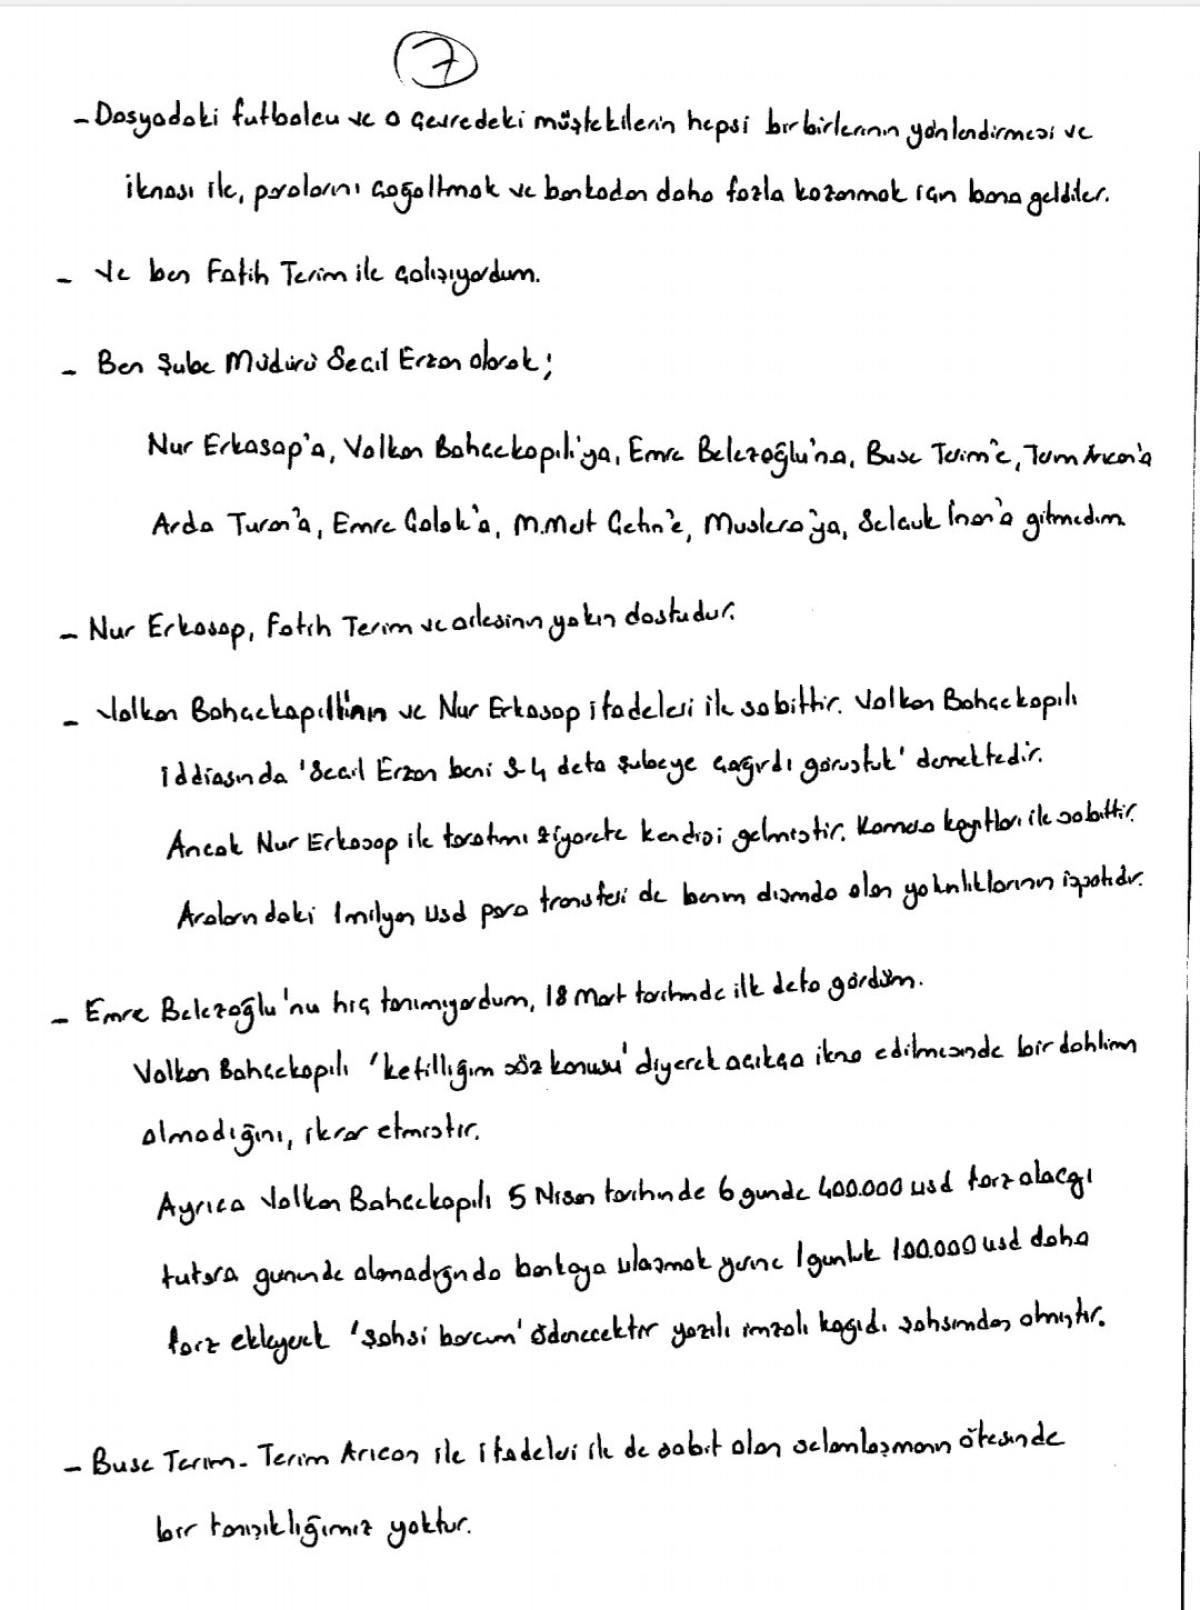 7
- Dosyadaki futbolcu ve o çevredeki müştekilerin hepsi birbirlerinin yönlendirmesi ve
iknası ile, paralarını çoğaltmak ve bankadan daha fazla kazanmak için bana geldiler.
- Ve ben Fatih Terim ile çalışıyordum.
- Ben Şube Müdürü Seçil Erzan olarak;
Nur Erkasap'a, Volkan Bahçekapılı'ya, Emre Belezoğlu'na, Buse Terim'e, Terim Arıcan'a
Arda Turan'a, Emre Çolak'a, M.Mert Çetin'e, Muslera'ya, Selçuk İnan'a gitmedim
- Nur Erkasap, Fatih Terim ve ailesinin yakın dostudur.
- Volkan Bahçekapılı'nın ve Nur Erkasap ifadeleri ile sabittir. Volkan Bahçekapılı
iddiasında 'Seçil Erzan beni 3-4 defa şubeye çağırdı görüştük' demektedir.
Ancak Nur Erkasap ile tarafımı ziyarete kendisi gelmiştir. Kamera kayıtları ile sabittir.
Aralarındaki 1 milyon usd para transferi de benim dışımda olan yakınlıklarının ispatıdır.
- Emre Belezoğlu'nu hiç tanımıyordum, 18 Mart tarihinde ilk defa gördüm.
Volkan Bahçekapılı 'kefilliğim söz konusu' diyerek açıkça ikna edilmesinde bir dahlinin
olmadığını, ikrar etmiştir.
Ayrıca Volkan Bahçekapılı 5 Nisan tarihinde 6 günde 400.000 usd farz alacağı
tutara gününde alamadığında bankaya ulaşmak yerine 1 günlük 100.000 usd daha
farz ekleyerek 'şahsi borcum' ödenecektir yazılı imzalı kağıdı şahsımdan almıştır.
- Buse Terim - Terim Arıcan ile ifadeleri ile de sabit olan selamlaşmanın ötesinde
bir tanışıklığımız yoktur.